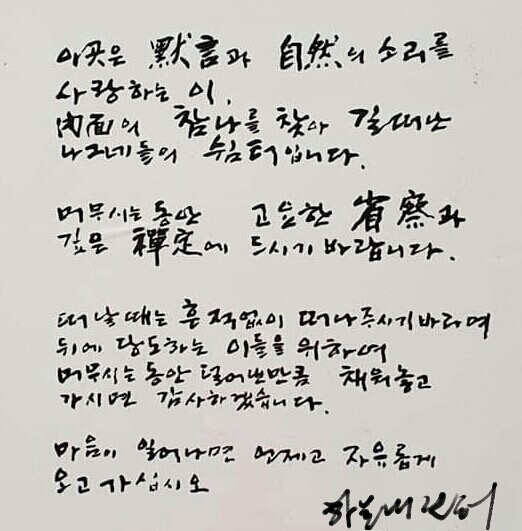 이곳은 默言과 自然의 소리를
사랑하는 이,
内面의 참나를 찾아 길떠난
나그네들의 쉼터입니다.
머무시는 동안 고요한 省察과
깊은 禪定에 드시기 바랍니다.
떠날때는 흔적없이 떠나주시기바라며
뒤에 당도하는 이들을 위하여
머무시는동안 덜어낸만큼 채워놓고
가시면 감사하겠습니다.
마음이 일어나면 언제고 자유롭게
오고 가십시오